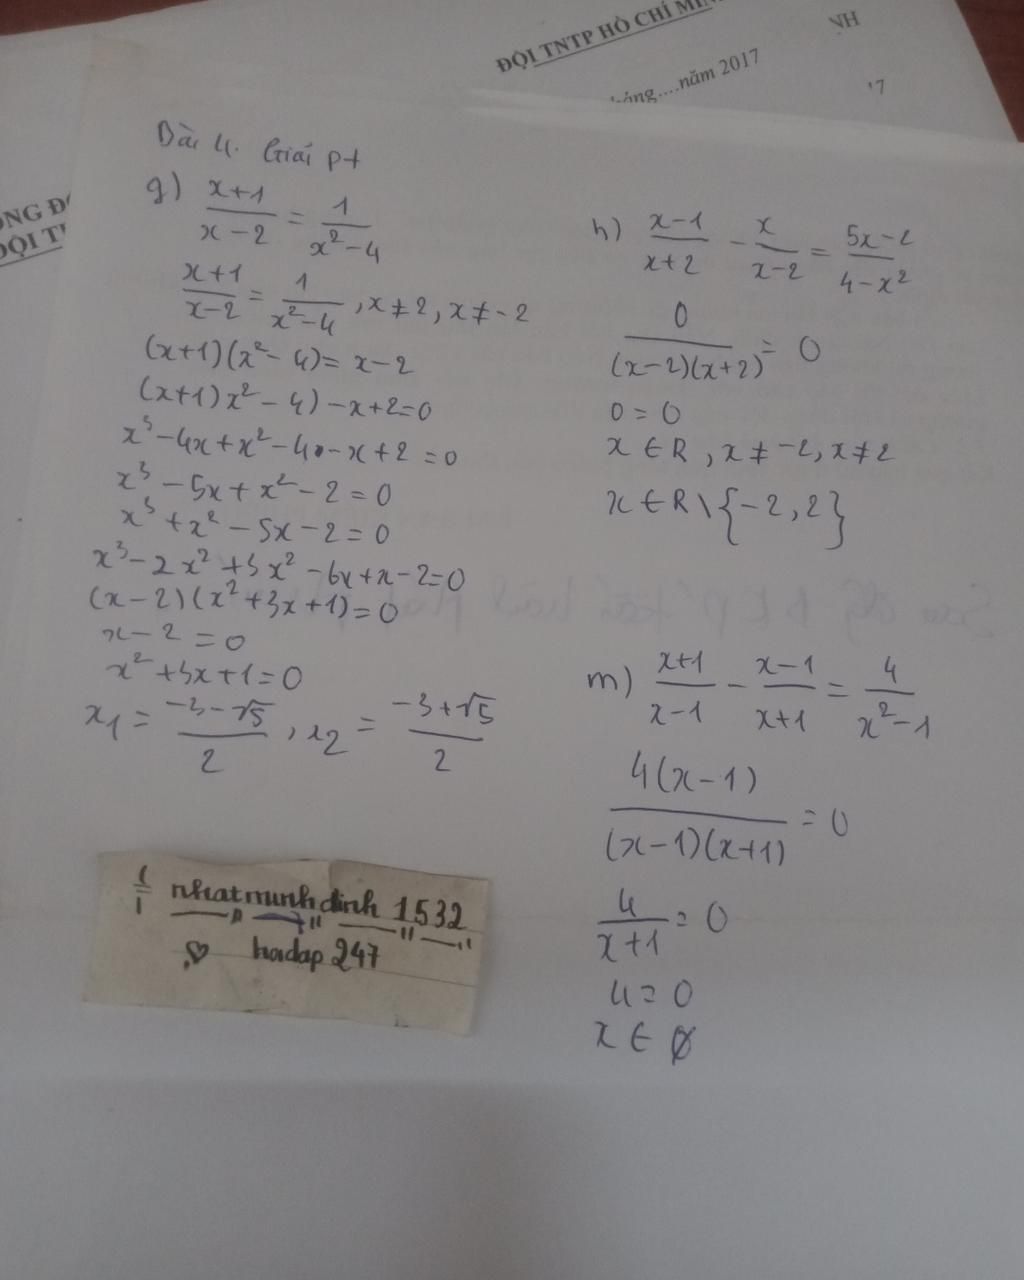 ĐỘI TNTP HỒ CHÍ MIN
VH
háng....năm 2017
'7
ONG Đ
ĐỘI T
Bài 4. Giải pt
g) \frac{x+1}{x-2} = \frac{1}{x²-4}
\frac{x+1}{x-2} = \frac{1}{x²-4}, x ≠ 2, x ≠ -2
(x+1)(x²-4) = x-2
(x+1)x²-4)-x+2=0
x³-4x+x²-4-x+2=0
x³-5x+x²-2=0
x³+x²-5x-2=0
x³-2x²+3x²-6x+x-2=0
(x-2)(x²+3x+1)=0
x-2=0
x²+3x+1=0
x₁ = \frac{-3-√5}{2}, x₂ = \frac{-3+√5}{2}
h) \frac{x-1}{x+2} - \frac{x}{x-2} = \frac{5x-2}{4-x²}
\frac{0}{(x-2)(x+2)} = 0
0 = 0
x ∈ R, x ≠ -2, x ≠ 2
x ∈ R \ {-2, 2}
m) \frac{x+1}{x-1} - \frac{x-1}{x+1} = \frac{4}{x²-1}
\frac{4(x-1)}{(x-1)(x+1)} = 0
\frac{4}{x+1} = 0
4 = 0
x ∈ ∅
nhatminhdinh 1532
hoidap 247